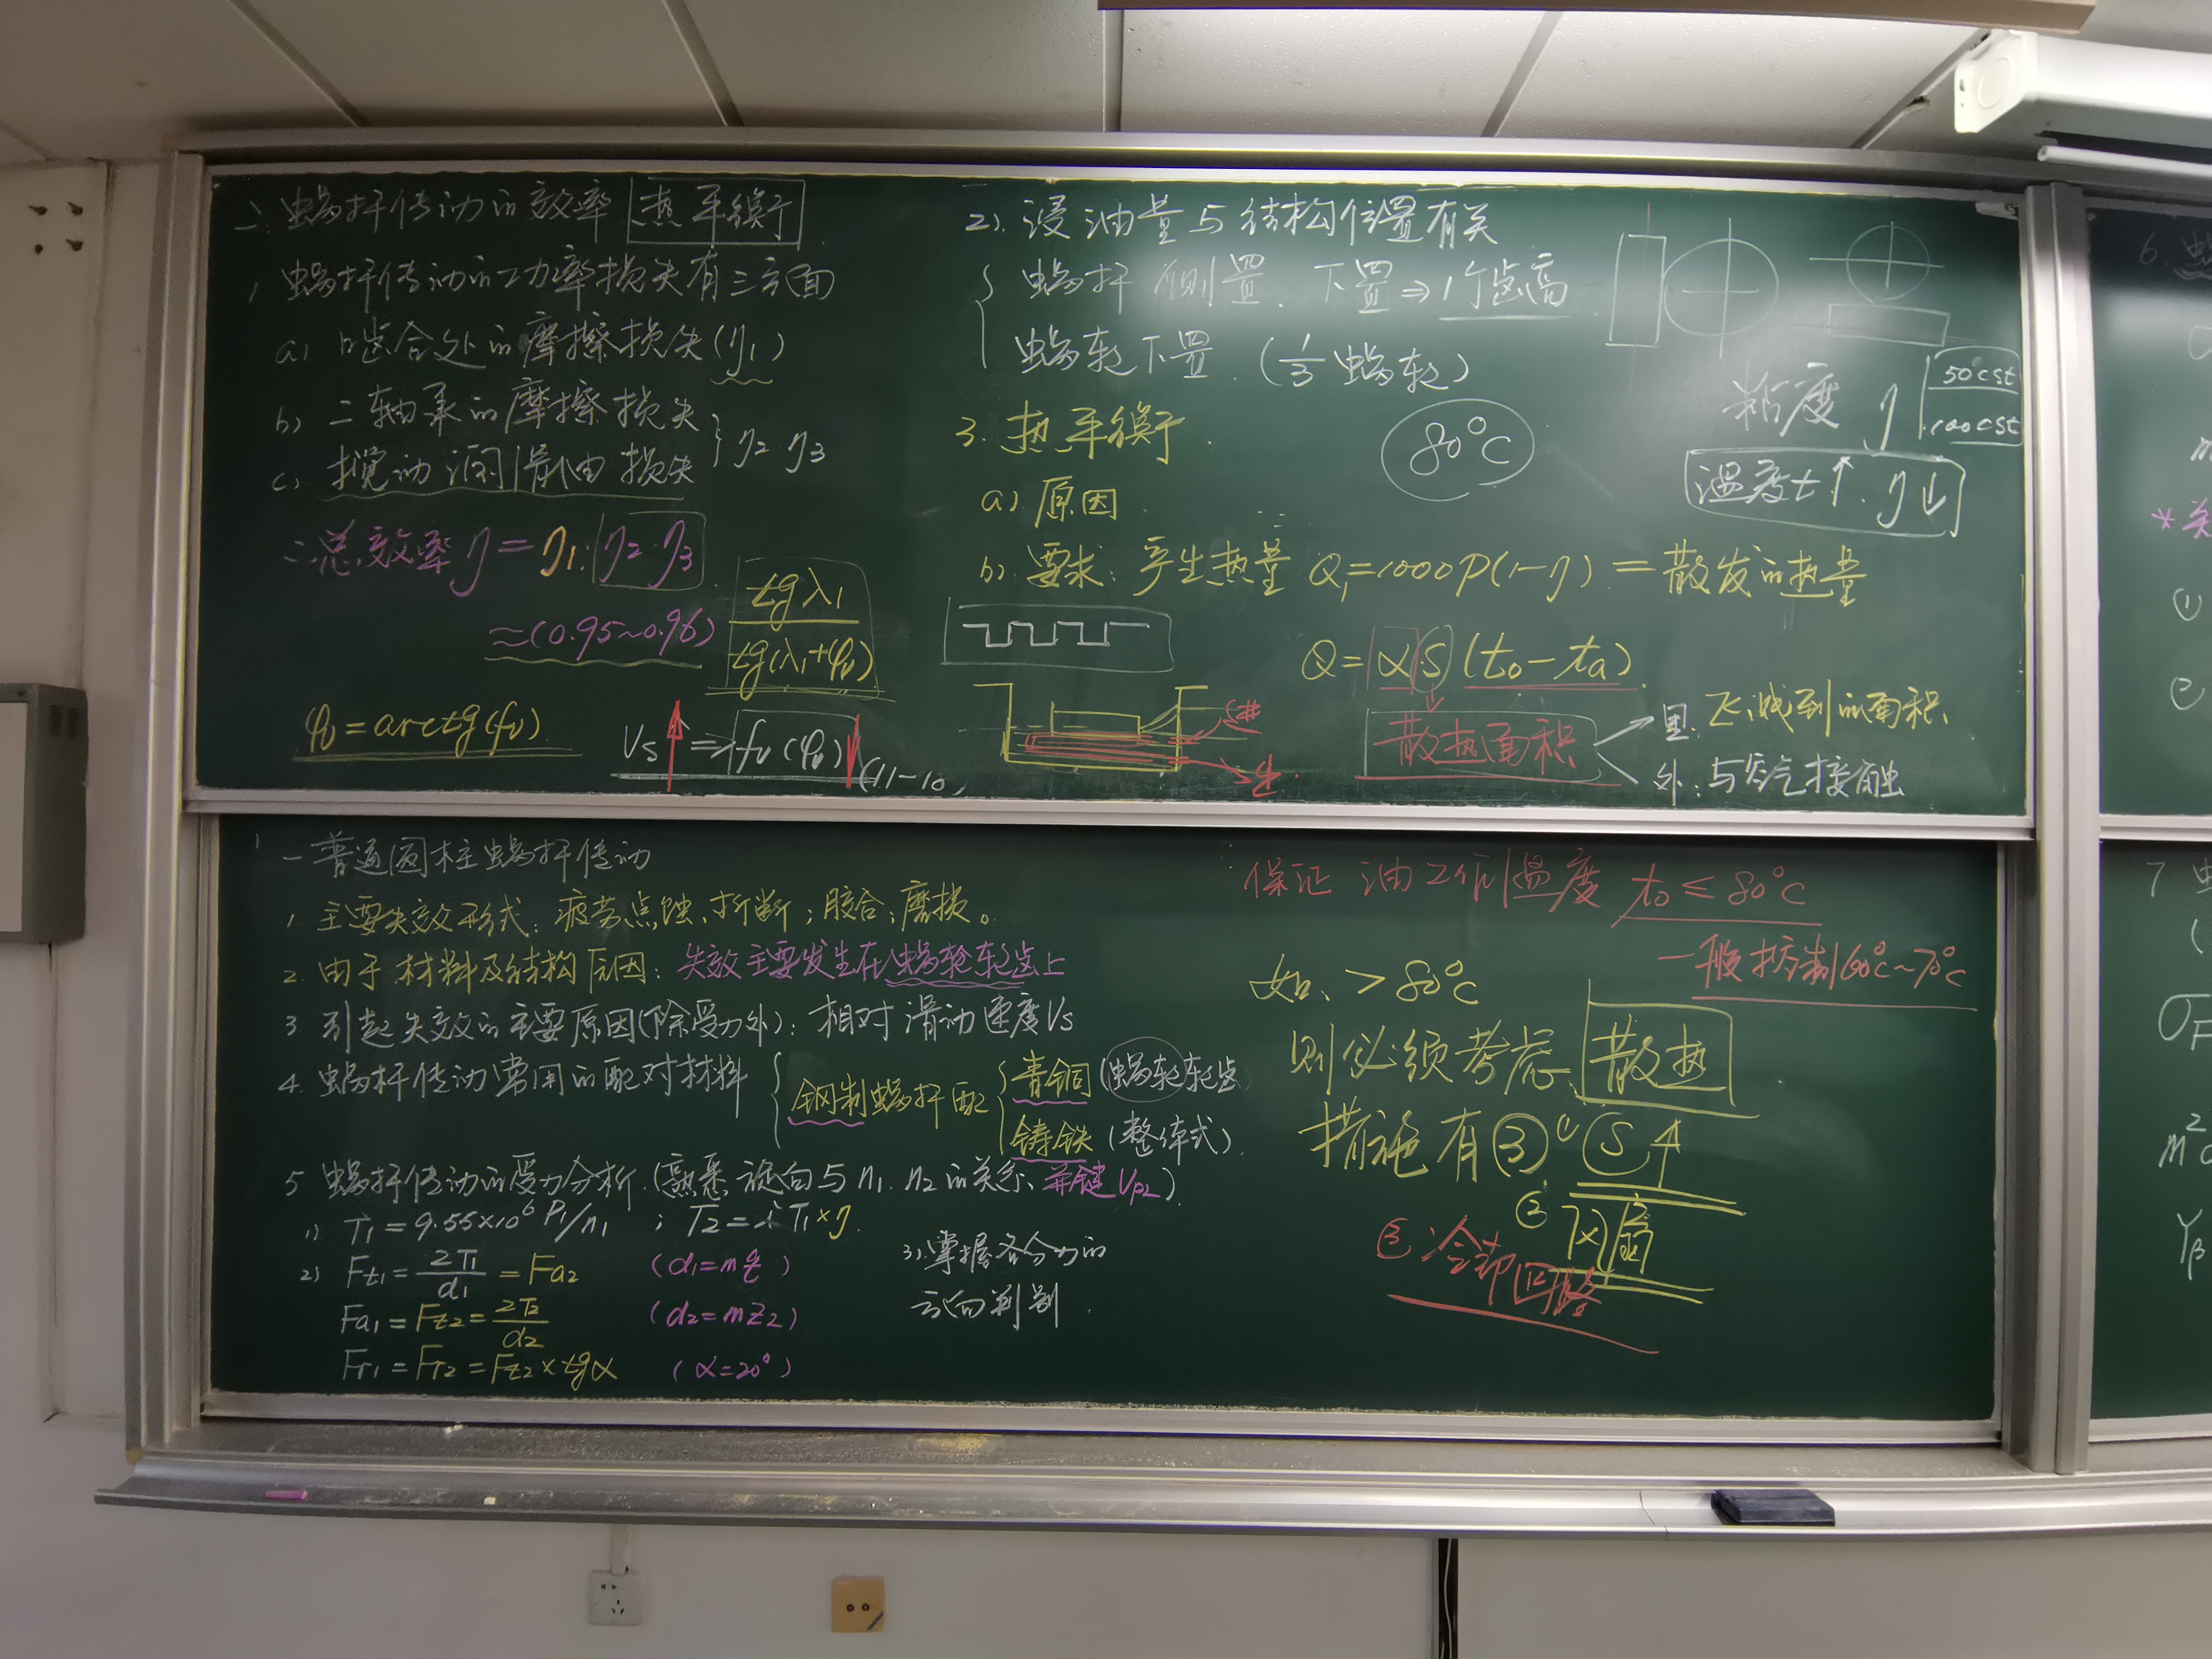 二. 蜗杆传动的效率 热平衡
1 蜗杆传动的功率损失有三方面
a) 啮合处的摩擦损失(η1)
b) 二轴承的摩擦损失
c) 搅动润滑油损失 } η2 η3
∴总效率η=η1·η2·η3
≈(0.95~0.96) tgλ1/tg(λ1+φv)
φv=arctg(fv)
Vs↑⇒fv(φv)↓(11-10
2). 浸油量与结构位置有关
蜗杆侧置、下置⇒1个齿高
蜗轮下置.(1/3蜗轮)
粘度 η 50cst
100cst
温度t↑.η↓
3. 热平衡. 80°C
a). 原因
b). 要求: 产生热量 Q1=1000P(1-η)=散发的热量
Q=α·S(t0-ta)
散热面积
里: 飞溅到的面积
外: 与空气接触
进
出
一 普通圆柱蜗杆传动
1. 主要失效形式: 疲劳点蚀、折断; 胶合; 磨损。
2. 由于材料及结构原因: 失效主要发生在蜗轮轮齿上
3 引起失效的主要原因(除受力外): 相对滑动速度Vs
4. 蜗杆传动常用的配对材料 { 钢制蜗杆配 { 青铜(蜗轮轮齿
铸铁(整体式)
5 蜗杆传动的受力分析.(熟悉旋向与n1. n2的关系、关键Vp2)
1) T1=9.55×10⁶ P1/n1 ; T2=iT1×η
2) Ft1=2T1/d1=Fa2 (d1=mq)
Fa1=Ft2=2T2/d2 (d2=mz2)
Fr1=Fr2=Ft2×tgα (α=20°)
3). 掌握各分力的
方向判别.
保证 油工作温度 t0≤80°C
一般控制60°C~70°C
如、>80°C
则必须考虑 散热
措施有③ ① S↑
② 风扇
③ 冷却回路